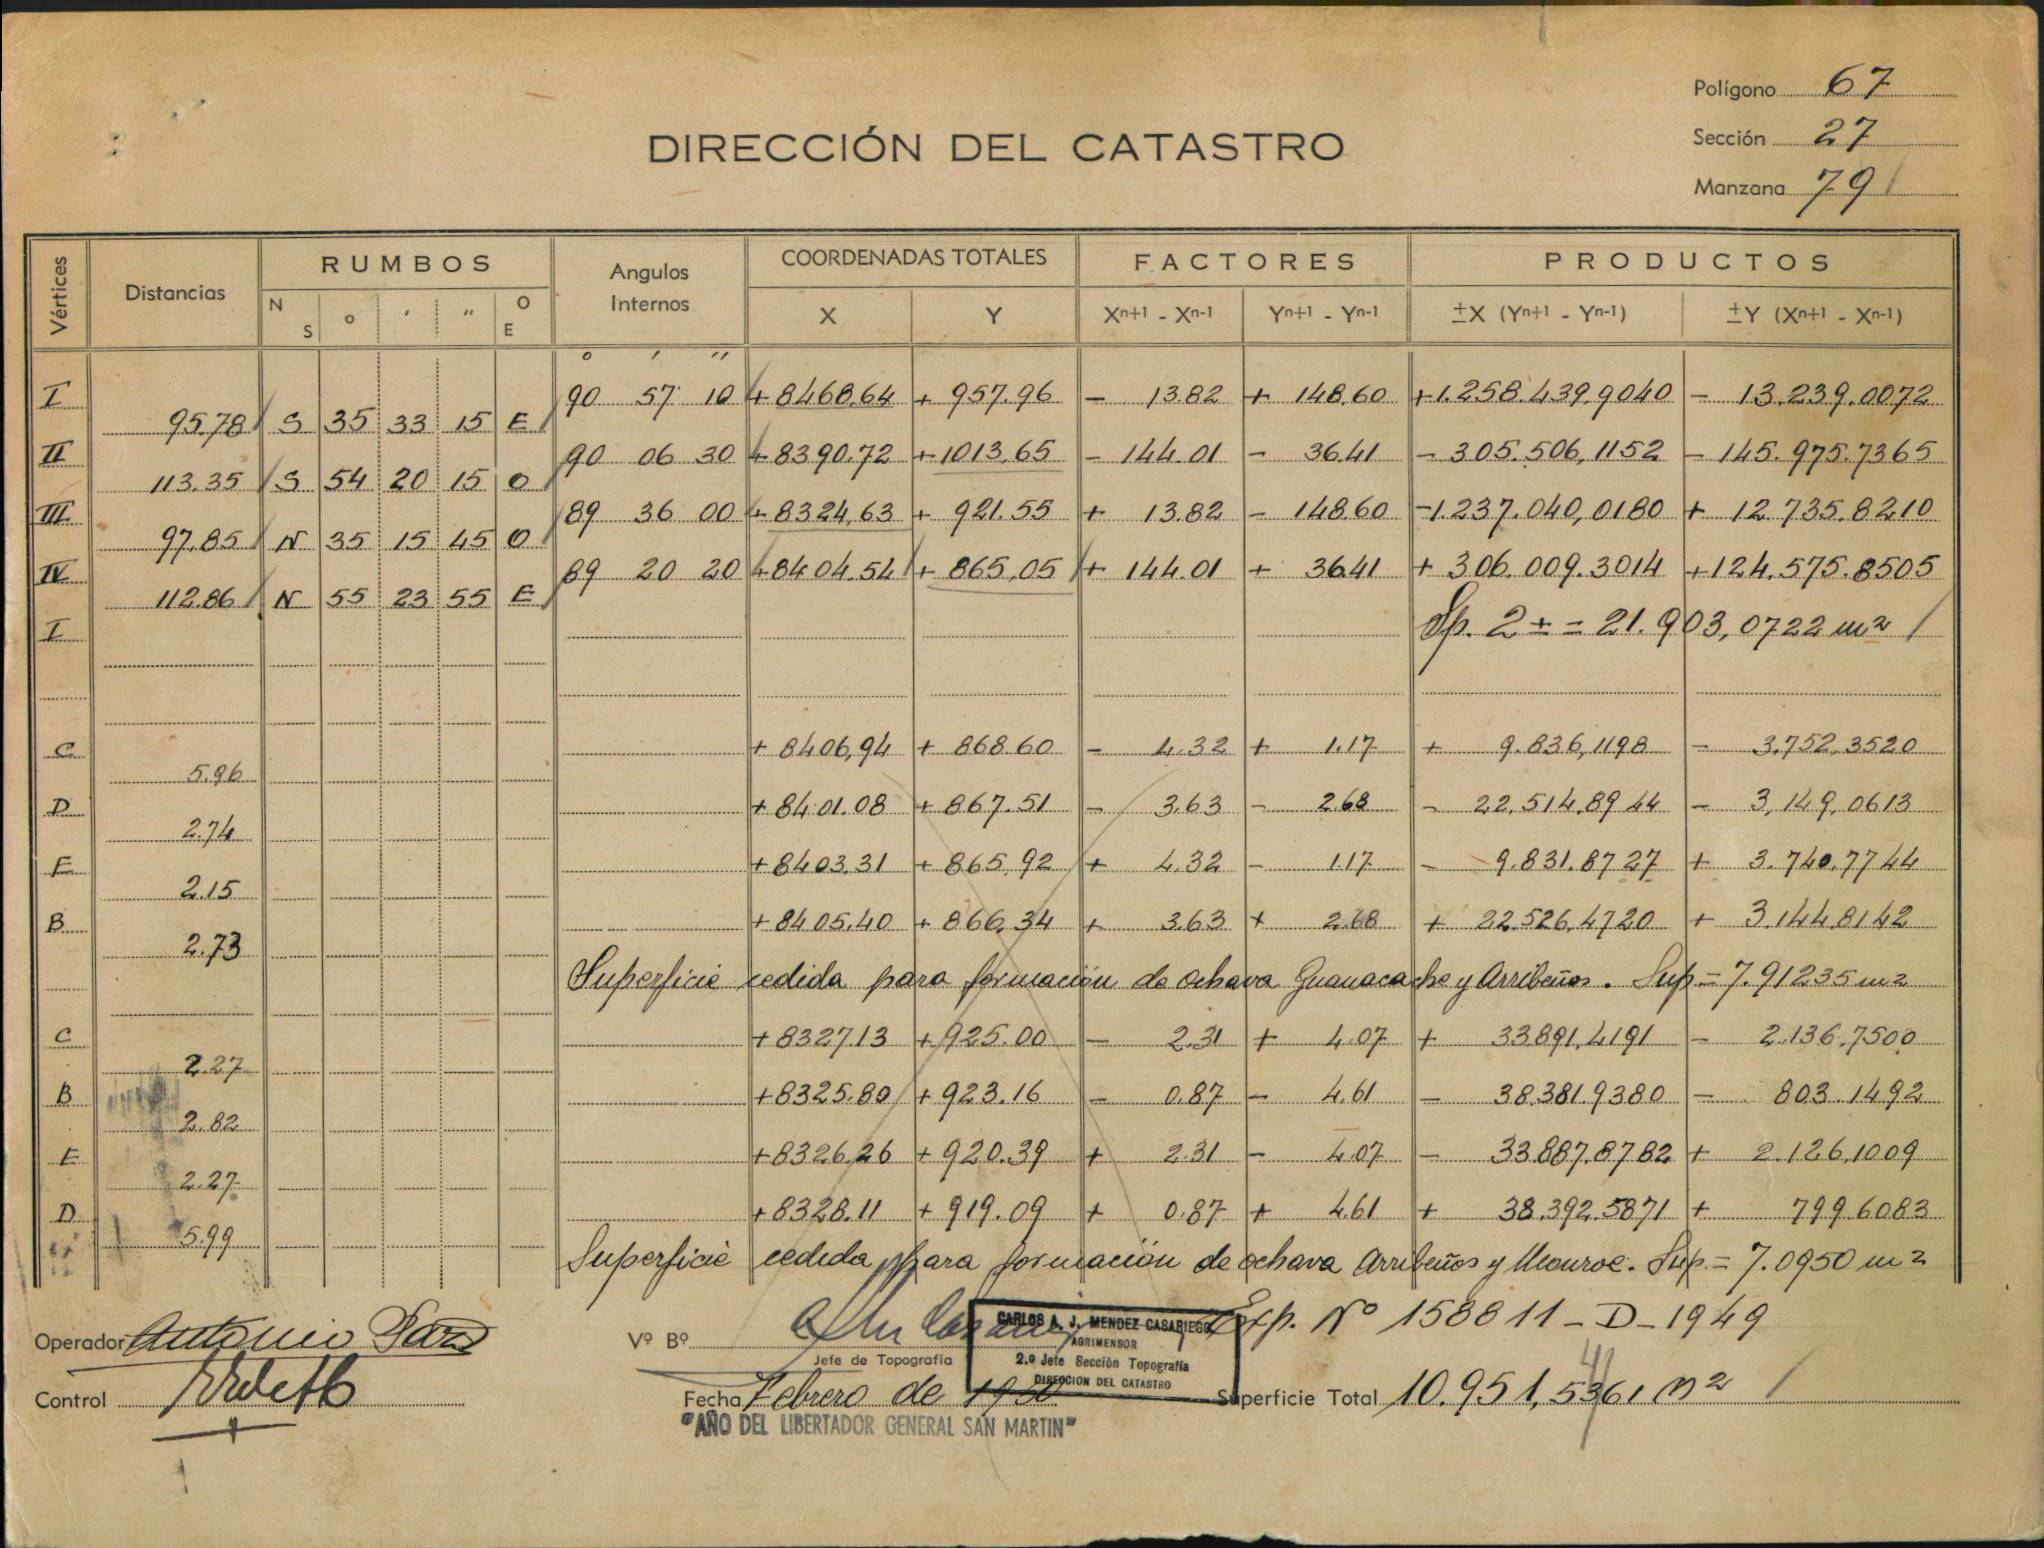 Polígono 67
Sección 27
Manzana 79
DIRECCIÓN DEL CATASTRO
Vértices Distancias RUMBOS Angulos Internos COORDENADAS TOTALES FACTORES PRODUCTOS
N S ° ' " O E X Y Xn+1 - Xn-1 Yn+1 - Yn-1 ±X (Yn+1 - Yn-1) ±Y (Xn+1 - Xn-1)
° ' "
I 90 57 10 +8468,64 + 957.96 - 13.82 + 148.60 +1.258.439,9040 - 13.239.0072
95.78 S 35 33 15 E
II 90 06 30 +8390.72 +1013,65 - 144.01 - 36.41 - 305.506,1152 - 145.975.7365
113.35 S 54 20 15 O
III 89 36 00 + 8324,63 + 921.55 + 13.82 - 148.60 -1.237.040,0180 + 12.735.8210
97.85 N 35 15 45 O
IV 89 20 20 +8404.54 + 865,05 + 144.01 + 36.41 + 306.009.3014 +124.575.8505
112.86 N 55 23 55 E
I Sp. 2 ± = 21.903,0722 m2
C + 8406,94 + 868.60 - 4.32 + 1.17 + 9.836,1198 - 3.752,3520
5.96
D +8401.08 +867.51 - 3.63 - 2.68 - 22.514.8944 - 3,149,0613
2.74
E +8403.31 +865,92 + 4.32 - 1.17 - 9.831.8727 + 3.740,7744
2.15
B +8405.40 +866,34 + 3.63 + 2.68 + 22.526,4720 + 3.144,8142
2.73
Superficie cedida para formación de ochava Guanacache y Arribeños. Sup = 7.91235 m2
C +8327.13 +925.00 - 2.31 + 4.07 + 33.891,4191 - 2.136.7500
2.27
B +8325.80 +923.16 - 0.87 - 4.61 - 38.381.9380 - 803.1492
2.82
E +8326.26 +920.39 + 2.31 - 4.07 - 33.887.8782 + 2.126.1009
2.27
D +8328.11 +919.09 + 0.87 + 4.61 + 38.392.5871 + 799.6083
5.99
Superficie cedida para formación de ochava Arribeños y Monroe. Sup. = 7.0950 m2
Exp. Nº 158811-D-1949
CARLOS A. J. MENDEZ CASARIEGO
AGRIMENSOR
2.º Jefe Sección Topografía
DIRECCION DEL CATASTRO
Operador Antonio
Vº Bº
Jefe de Topografía
Control
Fecha Febrero de 1950
Superficie Total 10.951,5361 m2
"AÑO DEL LIBERTADOR GENERAL SAN MARTIN"